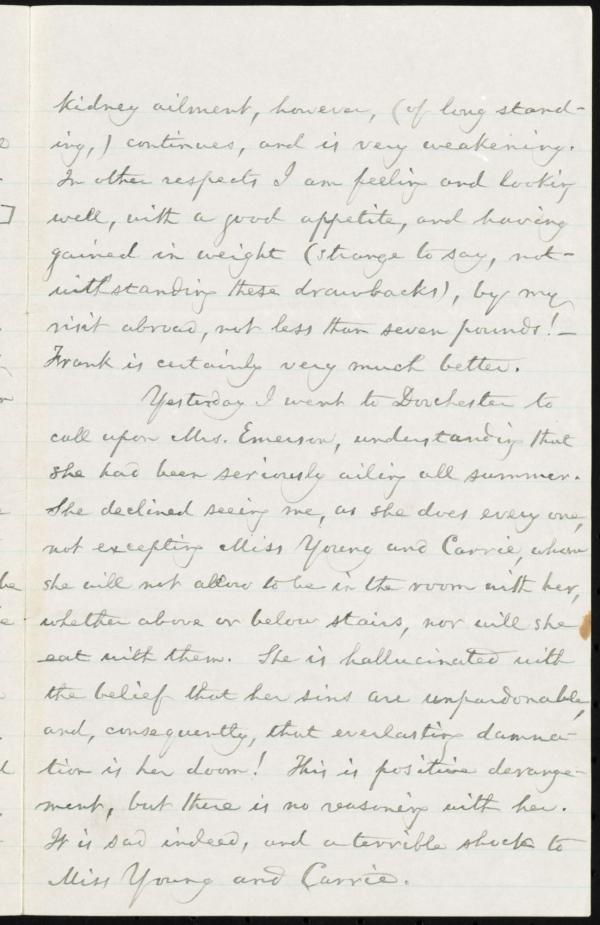 kidney ailment, however, (of long stand-
ing,) continues, and is very weakening.
In other respects I am feeling and looking
well, with a good appetite, and having
gained in weight (strange to say, not-
withstanding these drawbacks), by my
visit abroad, not less than seven pounds!—
Frank is certainly very much better.
Yesterday I went to Dorchester to
call upon Mrs. Emerson, understanding that
she had been seriously ailing all summer.
She declined seeing me, as she does every one,
not excepting Miss Young and Carrie, whom
she will not allow to be in the room with her,
whether above or below stairs, nor will she
eat with them. She is hallucinated with
the belief that her sins are unpardonable,
and, consequently, that everlasting damna-
tion is her doom! This is positive derange-
ment, but there is no reasoning with her.
It is sad indeed, and a terrible shock to
Miss Young and Carrie.